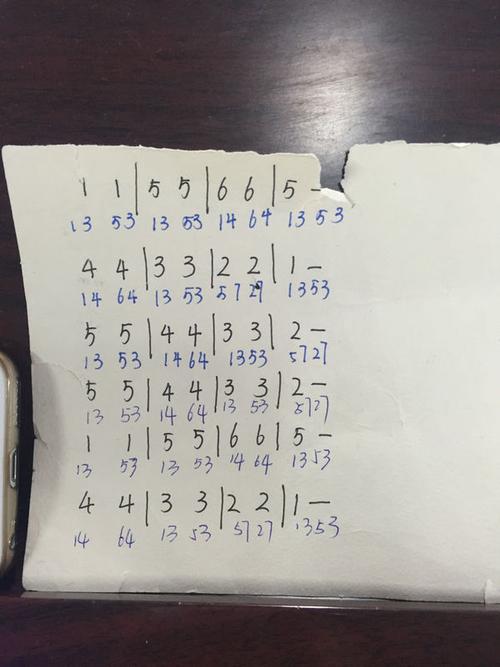 1 1 | 5 5 | 6 6 | 5 —
13 53 13 53 14 64 13 53
4 4 | 3 3 | 2 2 | 1 —
14 64 13 53 57 27 13 53
5 5 | 4 4 | 3 3 | 2 —
13 53 14 64 13 53 57 27
5 5 | 4 4 | 3 3 | 2 —
13 53 14 64 13 53 57 27
1 1 | 5 5 | 6 6 | 5 —
13 53 13 53 14 64 13 53
4 4 | 3 3 | 2 2 | 1 —
14 64 13 53 57 27 13 53